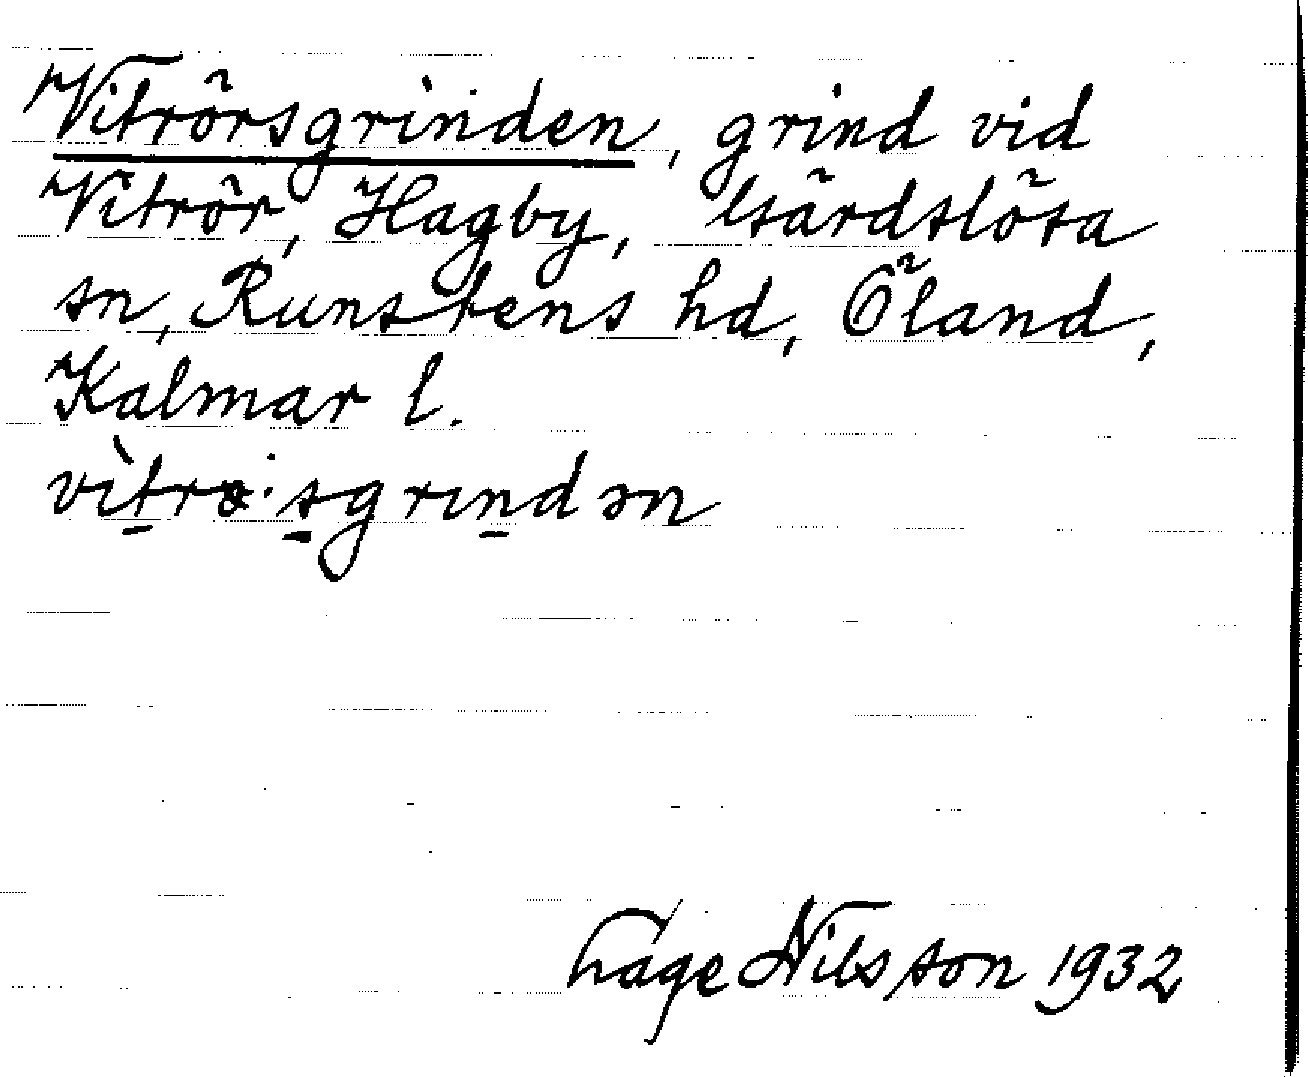 Vitrörsgrinden, grind vid
Vitrör, Hagby, Gärdslösa
sn, Runstens hd, Öland,
Kalmar l.
vìtrø·sgrɪndən
Åage Nilsson 1932